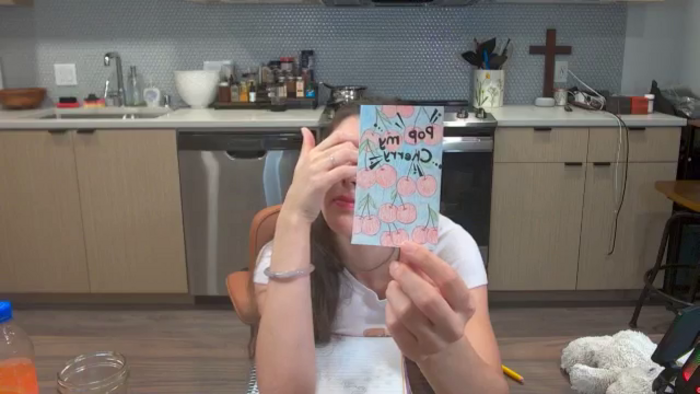 Pop my
Cherry